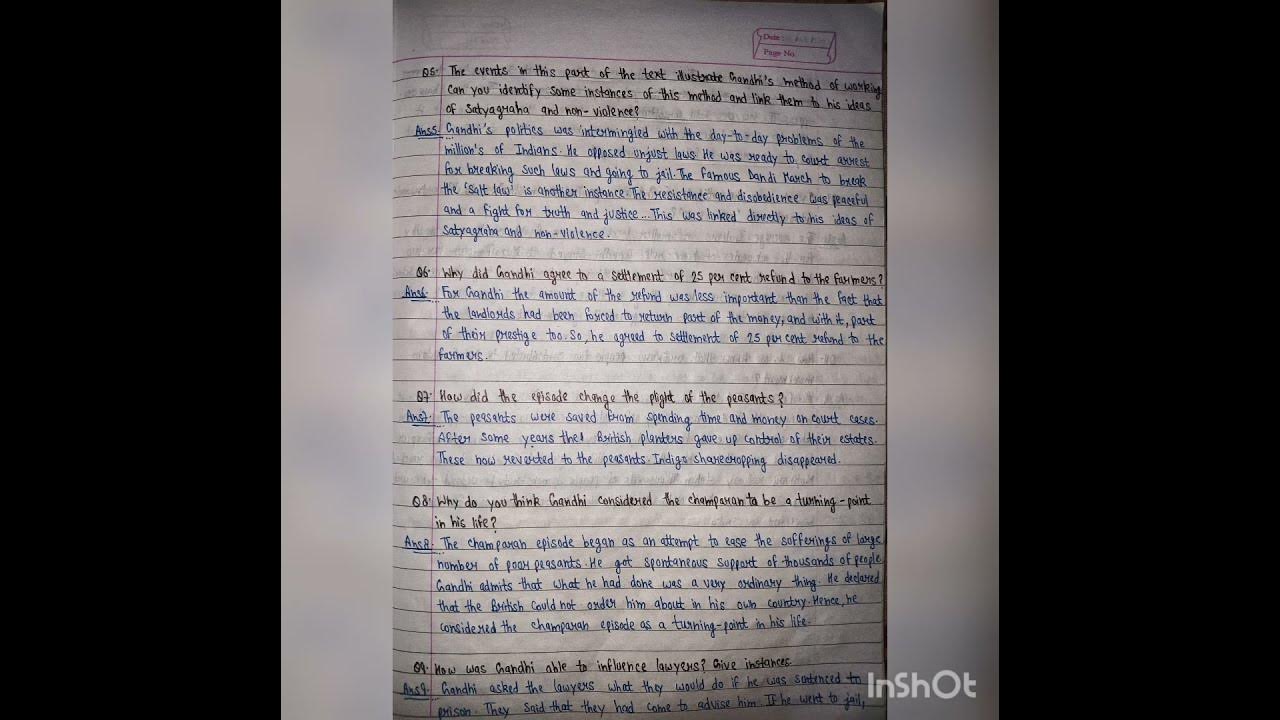 Date
Page No.
Q5. The events in this part of the text illustrate Gandhi's method of working
can you identify some instances of this method and link them to his ideas
of Satyagraha and non-violence?
Ans5. Gandhi's politics was intermingled with the day-to-day problems of the
million's of Indians. He opposed unjust laws. He was ready to court arrest
for breaking such laws and going to jail. The famous Dandi March to break
the 'salt law' is another instance. The resistance and disobedience was peaceful
and a fight for truth and justice... This was linked directly to his ideas of
Satyagraha and non-violence.
Q6. Why did Gandhi agree to a settlement of 25 per cent refund to the farmers?
Ans6. For Gandhi the amount of the refund was less important than the fact that
the landlords had been forced to return part of the money, and with it, part
of their prestige too. So, he agreed to settlement of 25 per cent refund to the
farmers.
Q7. How did the episode change the plight of the peasants?
Ans7. The peasants were saved from spending time and money on court cases.
After some years the British planters gave up control of their estates.
These now reverted to the peasants. Indigo sharecropping disappeared.
Q8. Why do you think Gandhi considered the champaran to be a turning-point
in his life?
Ans8. The champaran episode began as an attempt to ease the sufferings of large
number of poor peasants. He got spontaneous support of thousands of people.
Gandhi admits that what he had done was a very ordinary thing. He declared
that the British could not order him about in his own country. Hence, he
considered the champaran episode as a turning-point in his life.
Q9. How was Gandhi able to influence lawyers? Give instances.
Ans9. Gandhi asked the lawyers what they would do if he was sentenced to
prison. They said that they had come to advise him. If he went to jail,
InShOt